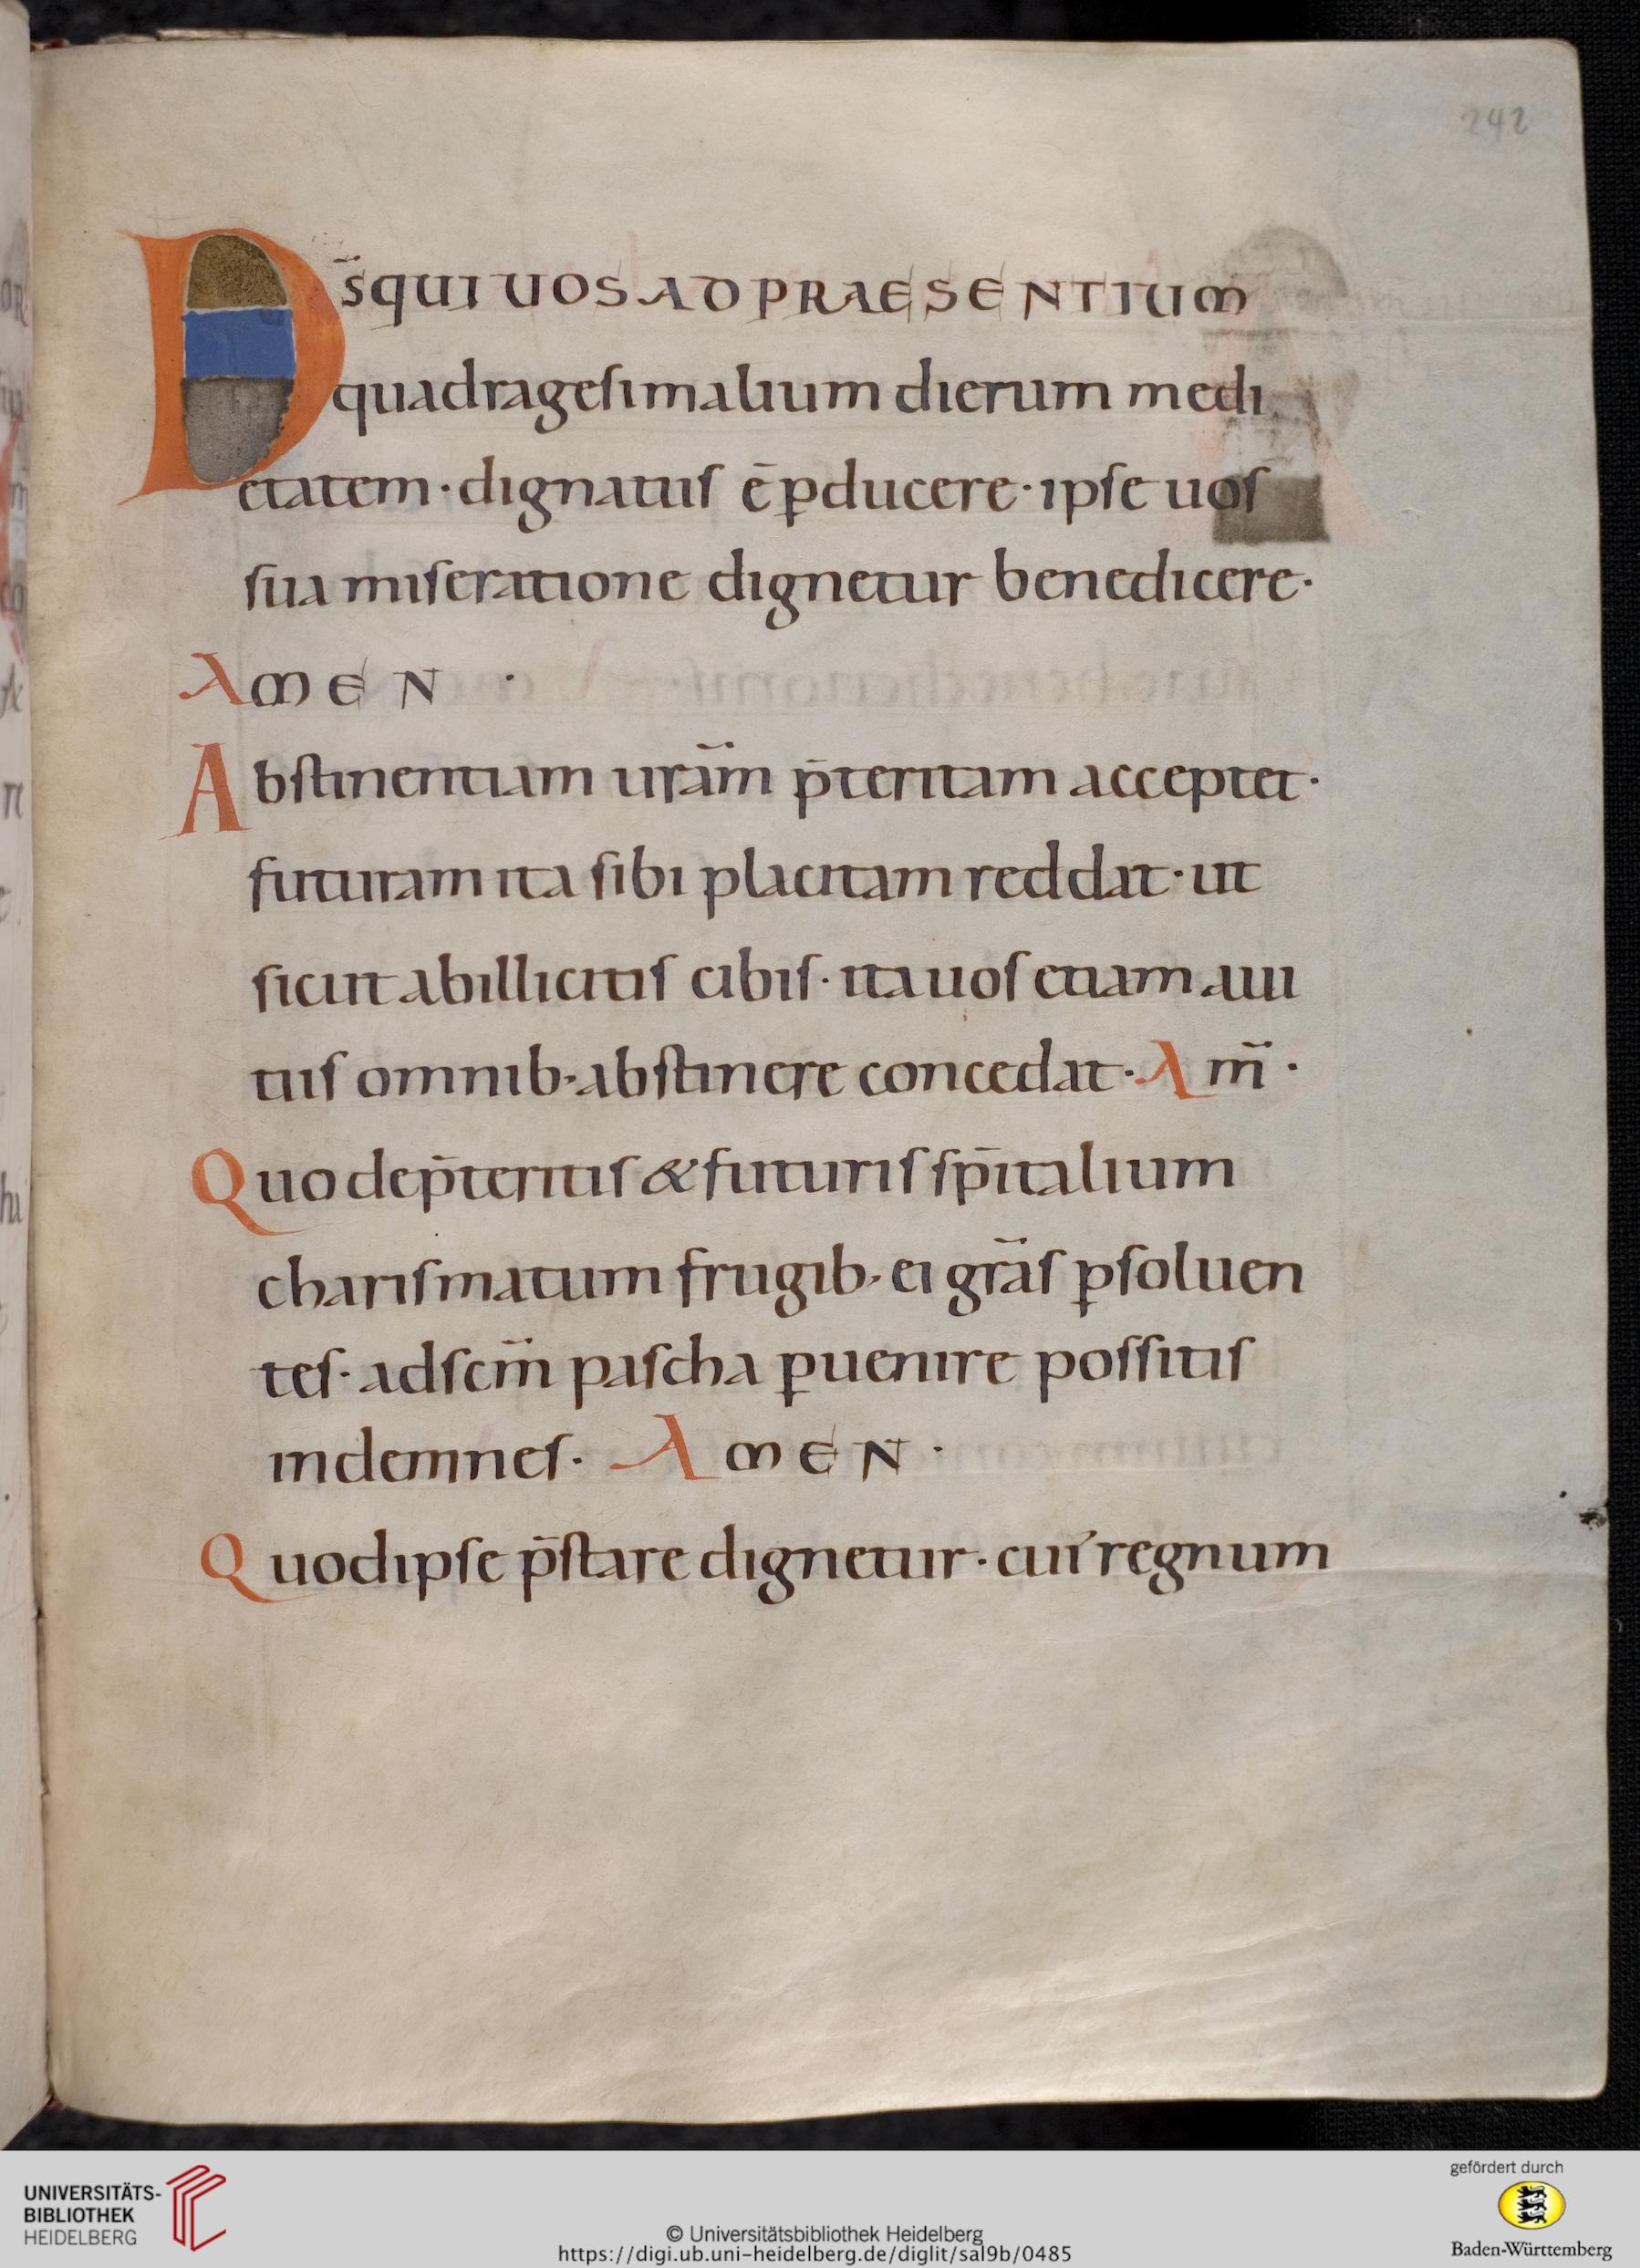 242
Ds̄ QUI UOS AD PRAESENTIUM
quadragesimalium dierum medi
etatem · dignatus ē ꝑducere · ipse uos
sua miseratione dignetur benedicere ·
AMEN ·
Abstinentiam urām p̄teritam acceptet ·
futuram ita sibi placitam reddat · ut
sicut ab illicitis cibis · ita uos etiam a uiı
tiis omnib; abstinere concedat · Am̄ ·
Quo de p̄teritis & futuris sp̄italium
charismatum frugib; ei grās ꝑsoluen
tes · ad scm̄ pascha ꝑuenire possitis
indemnes · AMEN ·
Quod ipse p̄stare dignetur · cuiʼ regnum
UNIVERSITÄTS-
BIBLIOTHEK
HEIDELBERG
© Universitätsbibliothek Heidelberg
https://digi.ub.uni-heidelberg.de/diglit/sal9b/0485
gefördert durch
Baden-Württemberg